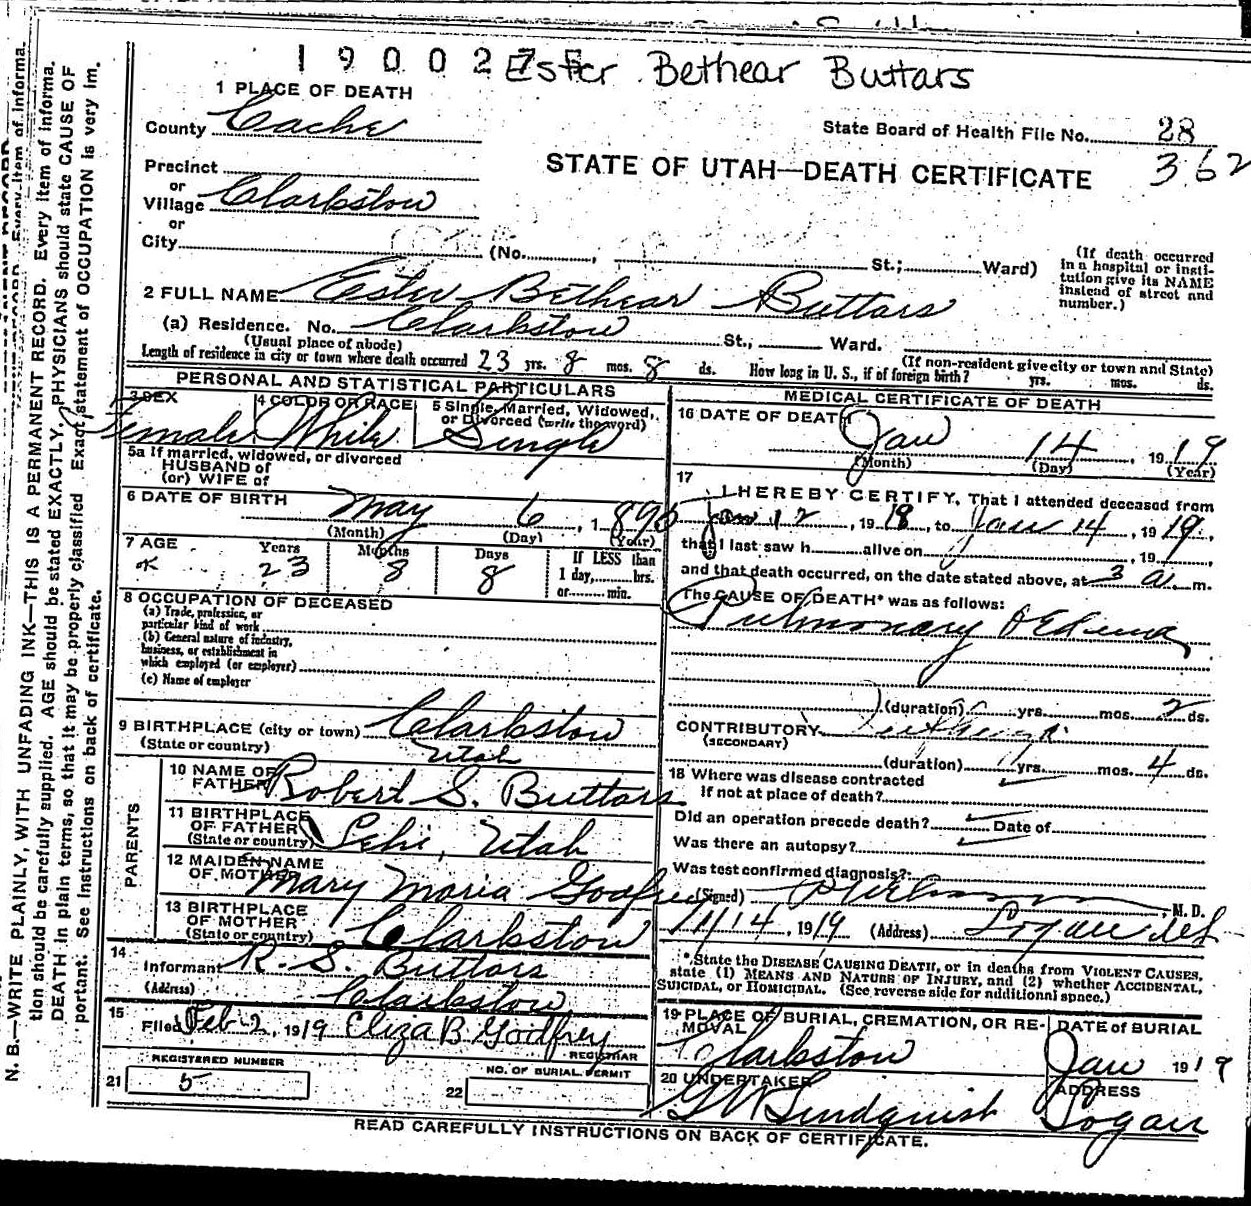 1900275 Ester Bethear Buttars
1 PLACE OF DEATH
County Cache
State Board of Health File No. 28
362
STATE OF UTAH—DEATH CERTIFICATE
Precinct
or
Village Clarkston
or
City (No. , St.; Ward)
(If death occurred in a hospital or institution give its NAME instead of street and number.)
2 FULL NAME Ester Bethear Buttars
(a) Residence. No. Clarkston St., Ward.
(Usual place of abode) (If non-resident give city or town and State)
Length of residence in city or town where death occurred 23 yrs. 8 mos. 8 ds. How long in U. S., if of foreign birth? yrs. mos. ds.
PERSONAL AND STATISTICAL PARTICULARS
3 SEX 4 COLOR OR RACE 5 Single, Married, Widowed, or Divorced (write the word)
Female White Single
5a If married, widowed, or divorced
HUSBAND of
(or) WIFE of
6 DATE OF BIRTH May 6, 1895
(Month) (Day) (Year)
7 AGE Years Months Days If LESS than
23 8 8 1 day, hrs.
or min.
8 OCCUPATION OF DECEASED
(a) Trade, profession, or
particular kind of work
(b) General nature of industry,
business, or establishment in
which employed (or employer)
(c) Name of employer
9 BIRTHPLACE (city or town) Clarkston
(State or country) Utah
PARENTS
10 NAME OF
FATHER Robert S. Buttars
11 BIRTHPLACE
OF FATHER
(State or country) Lehi, Utah
12 MAIDEN NAME
OF MOTHER Mary Maria Godfrey
13 BIRTHPLACE
OF MOTHER
(State or country) Clarkston
14
Informant R. S. Buttars
(Address) Clarkston
15
Filed Feb 2, 1919 Eliza B Godfrey
REGISTRAR
REGISTERED NUMBER NO. OF BURIAL PERMIT
21 5 22
MEDICAL CERTIFICATE OF DEATH
16 DATE OF DEATH
Jan 14, 1919
(Month) (Day) (Year)
17
I HEREBY CERTIFY, That I attended deceased from
Jan 12, 1918, to Jan 14, 1919,
that I last saw h alive on , 19
and that death occurred, on the date stated above, at 3 a m.
The CAUSE OF DEATH* was as follows:
Pulmonary Oedema
(duration) yrs. mos. 2 ds.
CONTRIBUTORY
(SECONDARY)
(duration) yrs. mos. 4 ds.
18 Where was disease contracted
If not at place of death?
Did an operation precede death? Date of
Was there an autopsy?
Was test confirmed diagnosis?
(Signed) , M. D.
1/14, 1919 (Address) Logan Ut
*State the DISEASE CAUSING DEATH, or in deaths from VIOLENT CAUSES,
state (1) MEANS AND NATURE OF INJURY, and (2) whether ACCIDENTAL,
SUICIDAL, or HOMICIDAL. (See reverse side for additional space.)
19 PLACE OF BURIAL, CREMATION, OR REMOVAL DATE of BURIAL
Clarkston Jan 1919
20 UNDERTAKER ADDRESS
G W Lindquist Logan
READ CAREFULLY INSTRUCTIONS ON BACK OF CERTIFICATE.
N. B.—WRITE PLAINLY, WITH UNFADING INK—THIS IS A PERMANENT RECORD. Every item of informa-
tion should be carefully supplied. AGE should be stated EXACTLY. PHYSICIANS should state CAUSE OF
DEATH in plain terms, so that it may be properly classified. Exact statement of OCCUPATION is very im-
portant. See instructions on back of certificate.